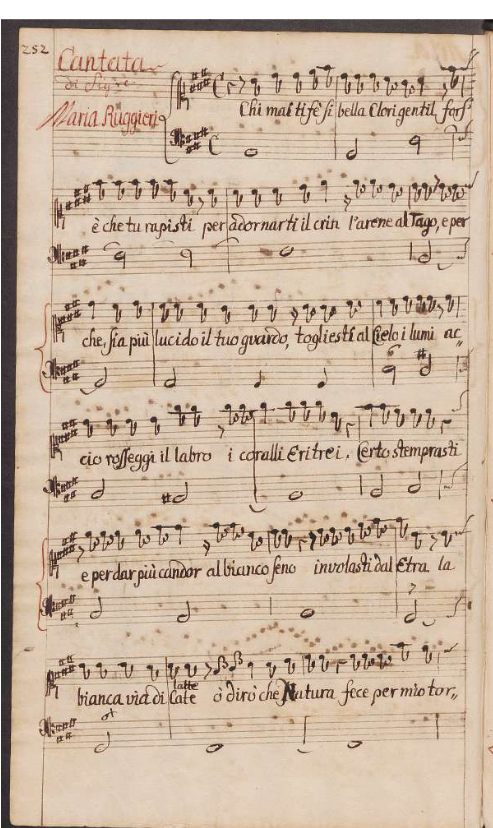 252
Cantata
di Sigre
Maria Ruggieri
Chi mai ti fè si bella Clori gentil, fors'
è che tu rapisti per adornarti il crin l'arene al Tago, e per
che, sia più lucido il tuo guardo, togliesti al Cielo i lumi ac,,
cio rosseggi il labro i coralli Eritrei. Certo stemprasti
e per dar più candor al bianco seno involasti dal Etra la
latte
bianca via di Cate ò dirò che Natura fece per mio tor,,